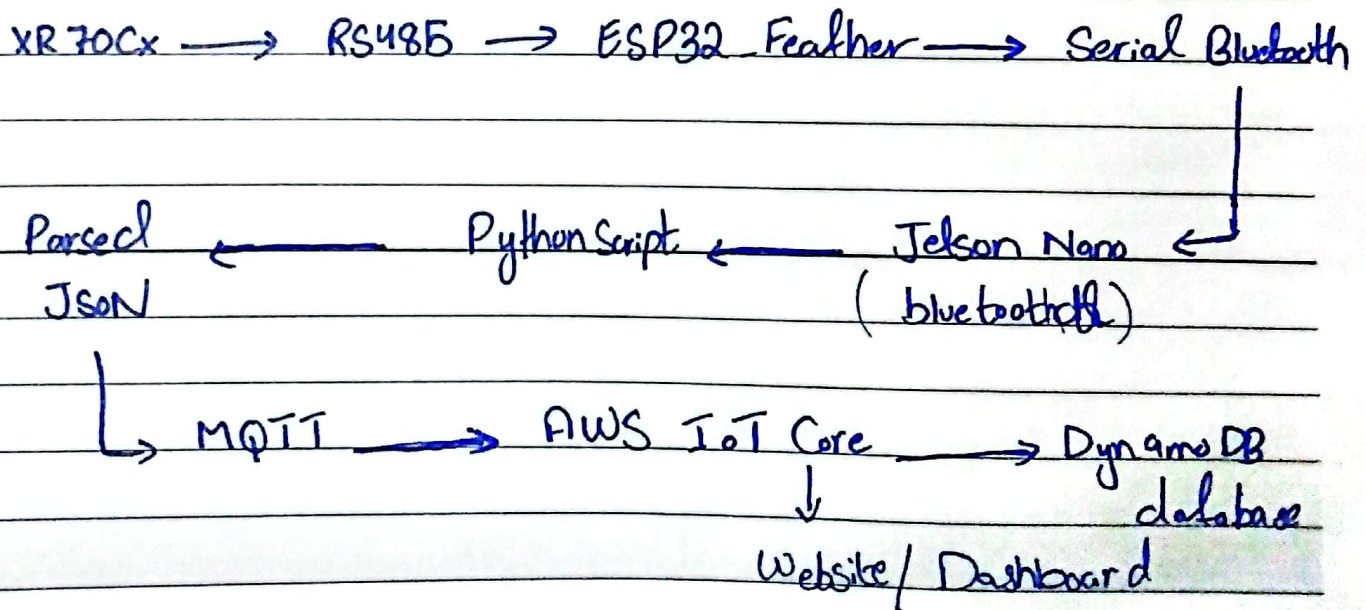 XR70Cx → RS485 → ESP32 Feather → Serial Bluetooth
Parsed ← Python Script ← Jetson Nano
JSON
MQTT → AWS IoT Core → DynamoDB
database
Website / Dashboard